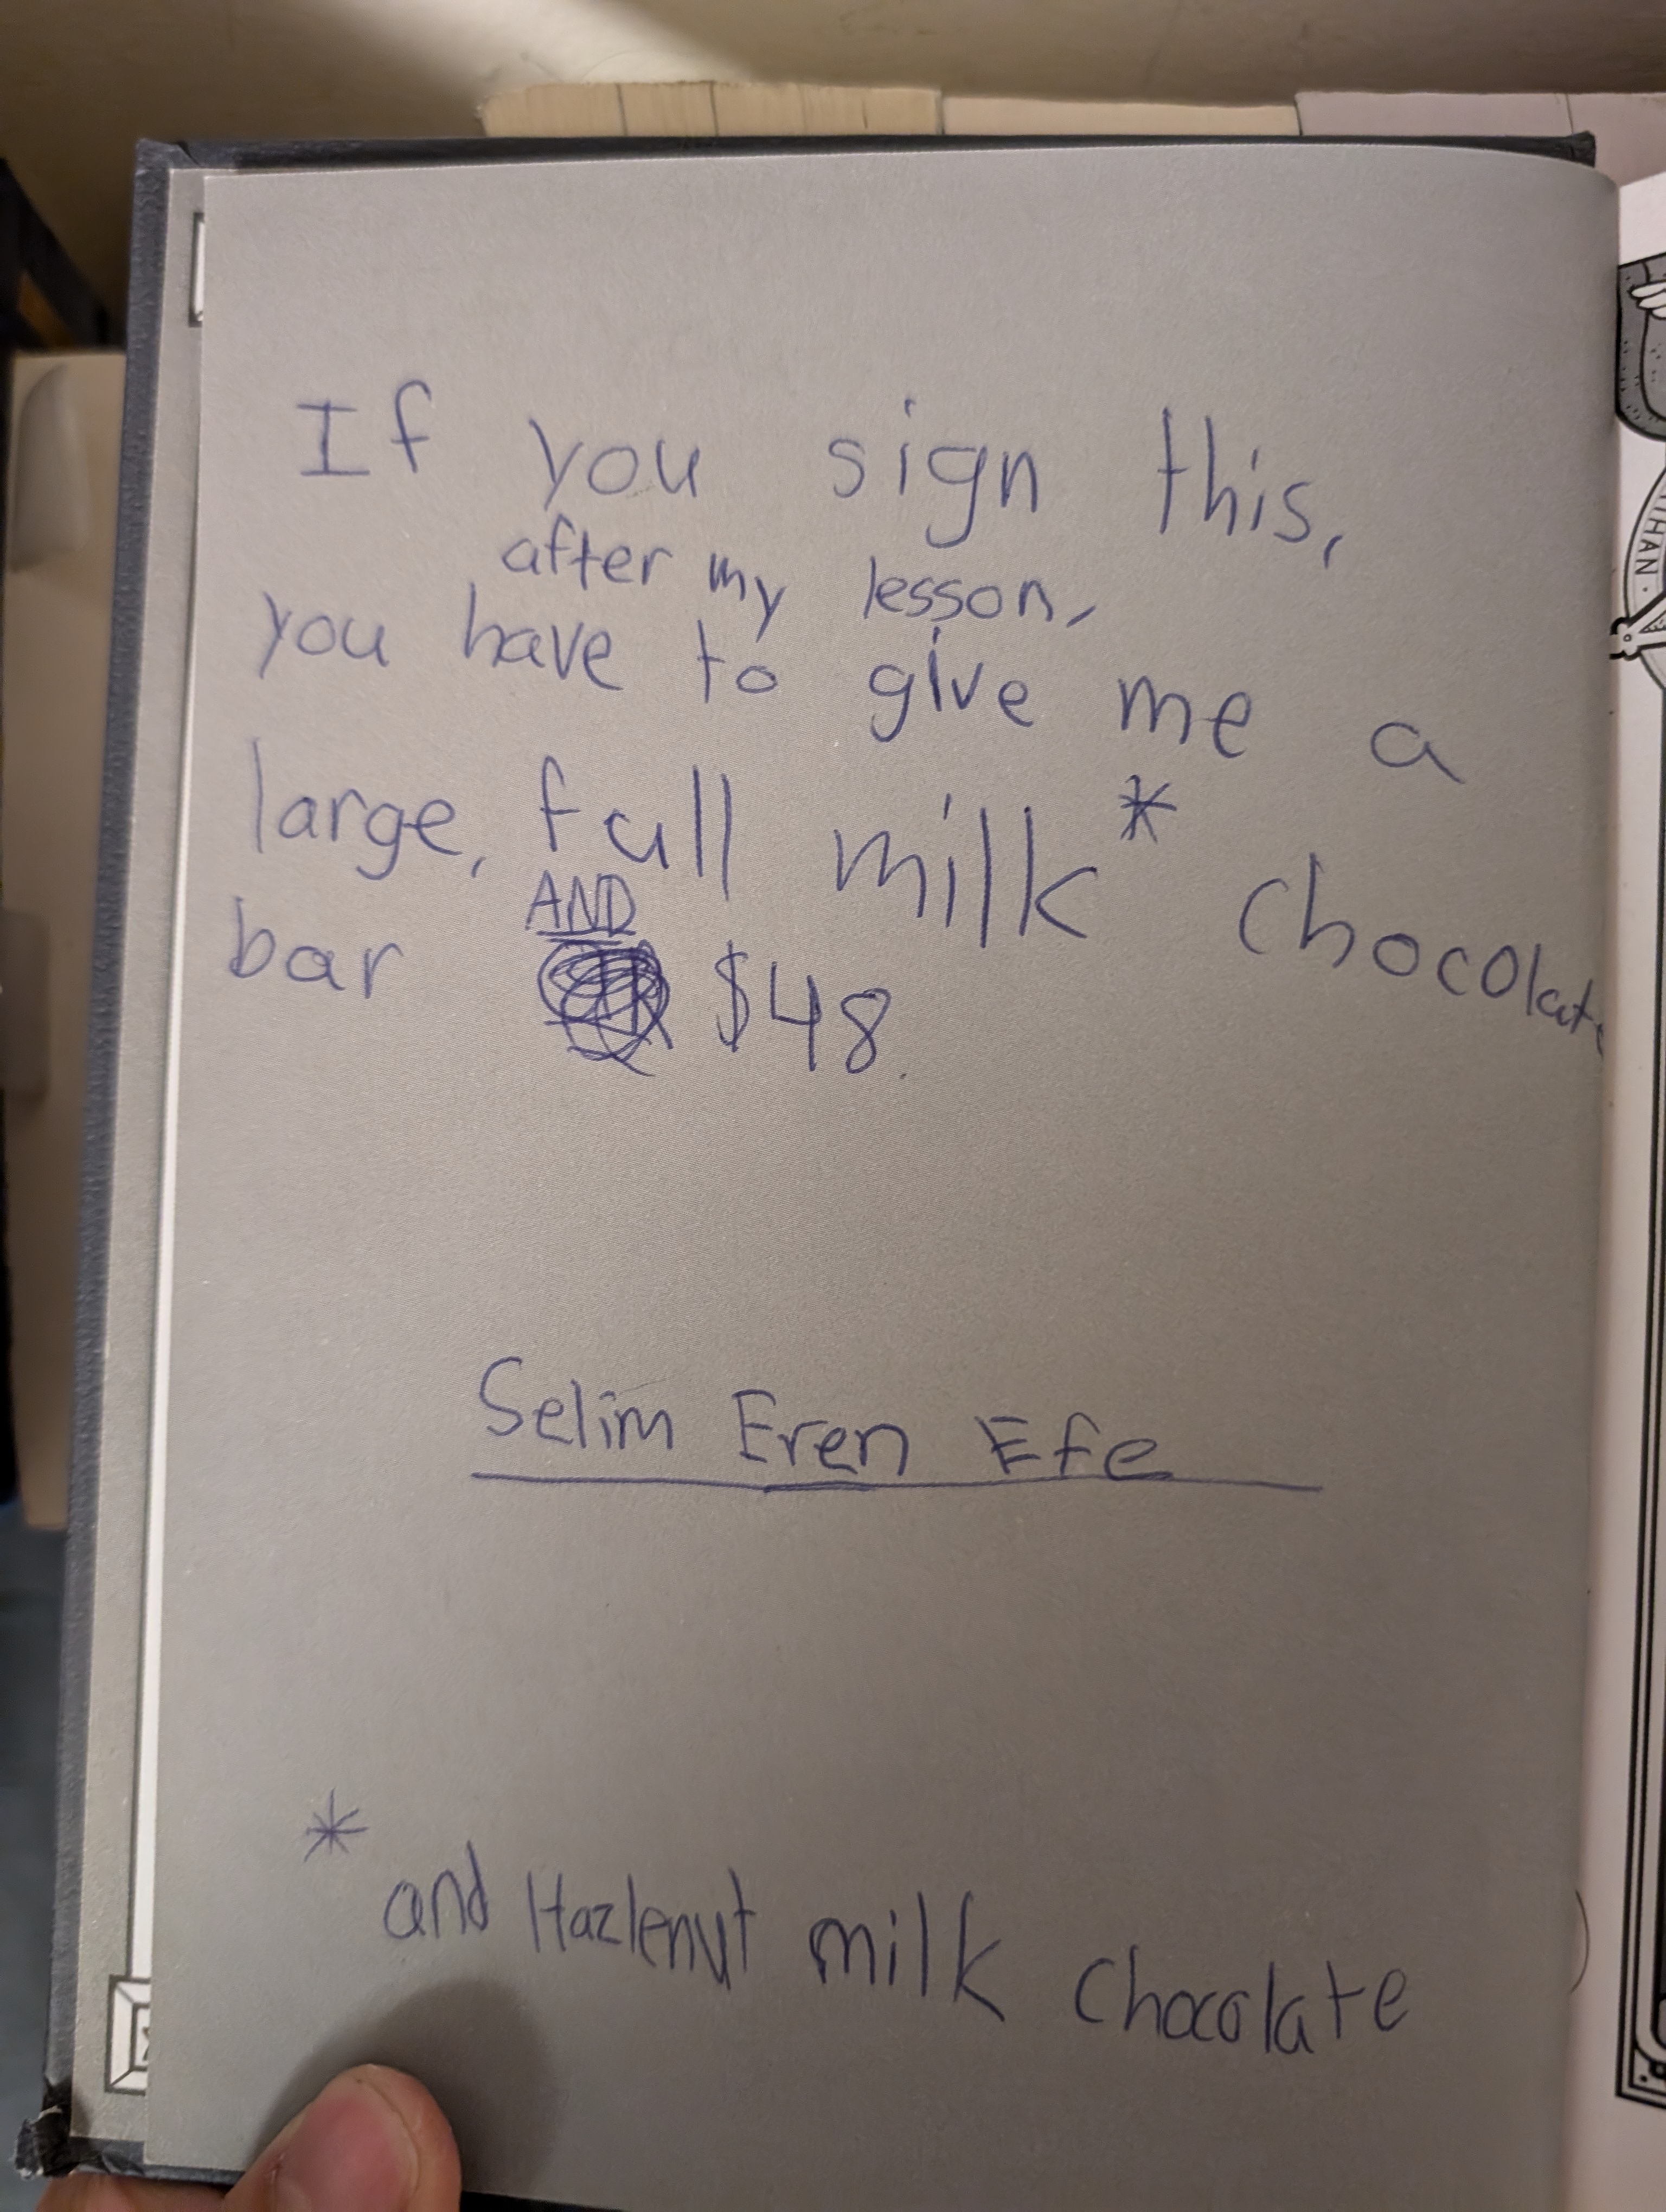 If you sign this,
after my lesson,
you have to give me a
large, full milk* chocolate
AND
bar $48
Selim Eren Efe
* and Hazlenut milk chocolate
HAN